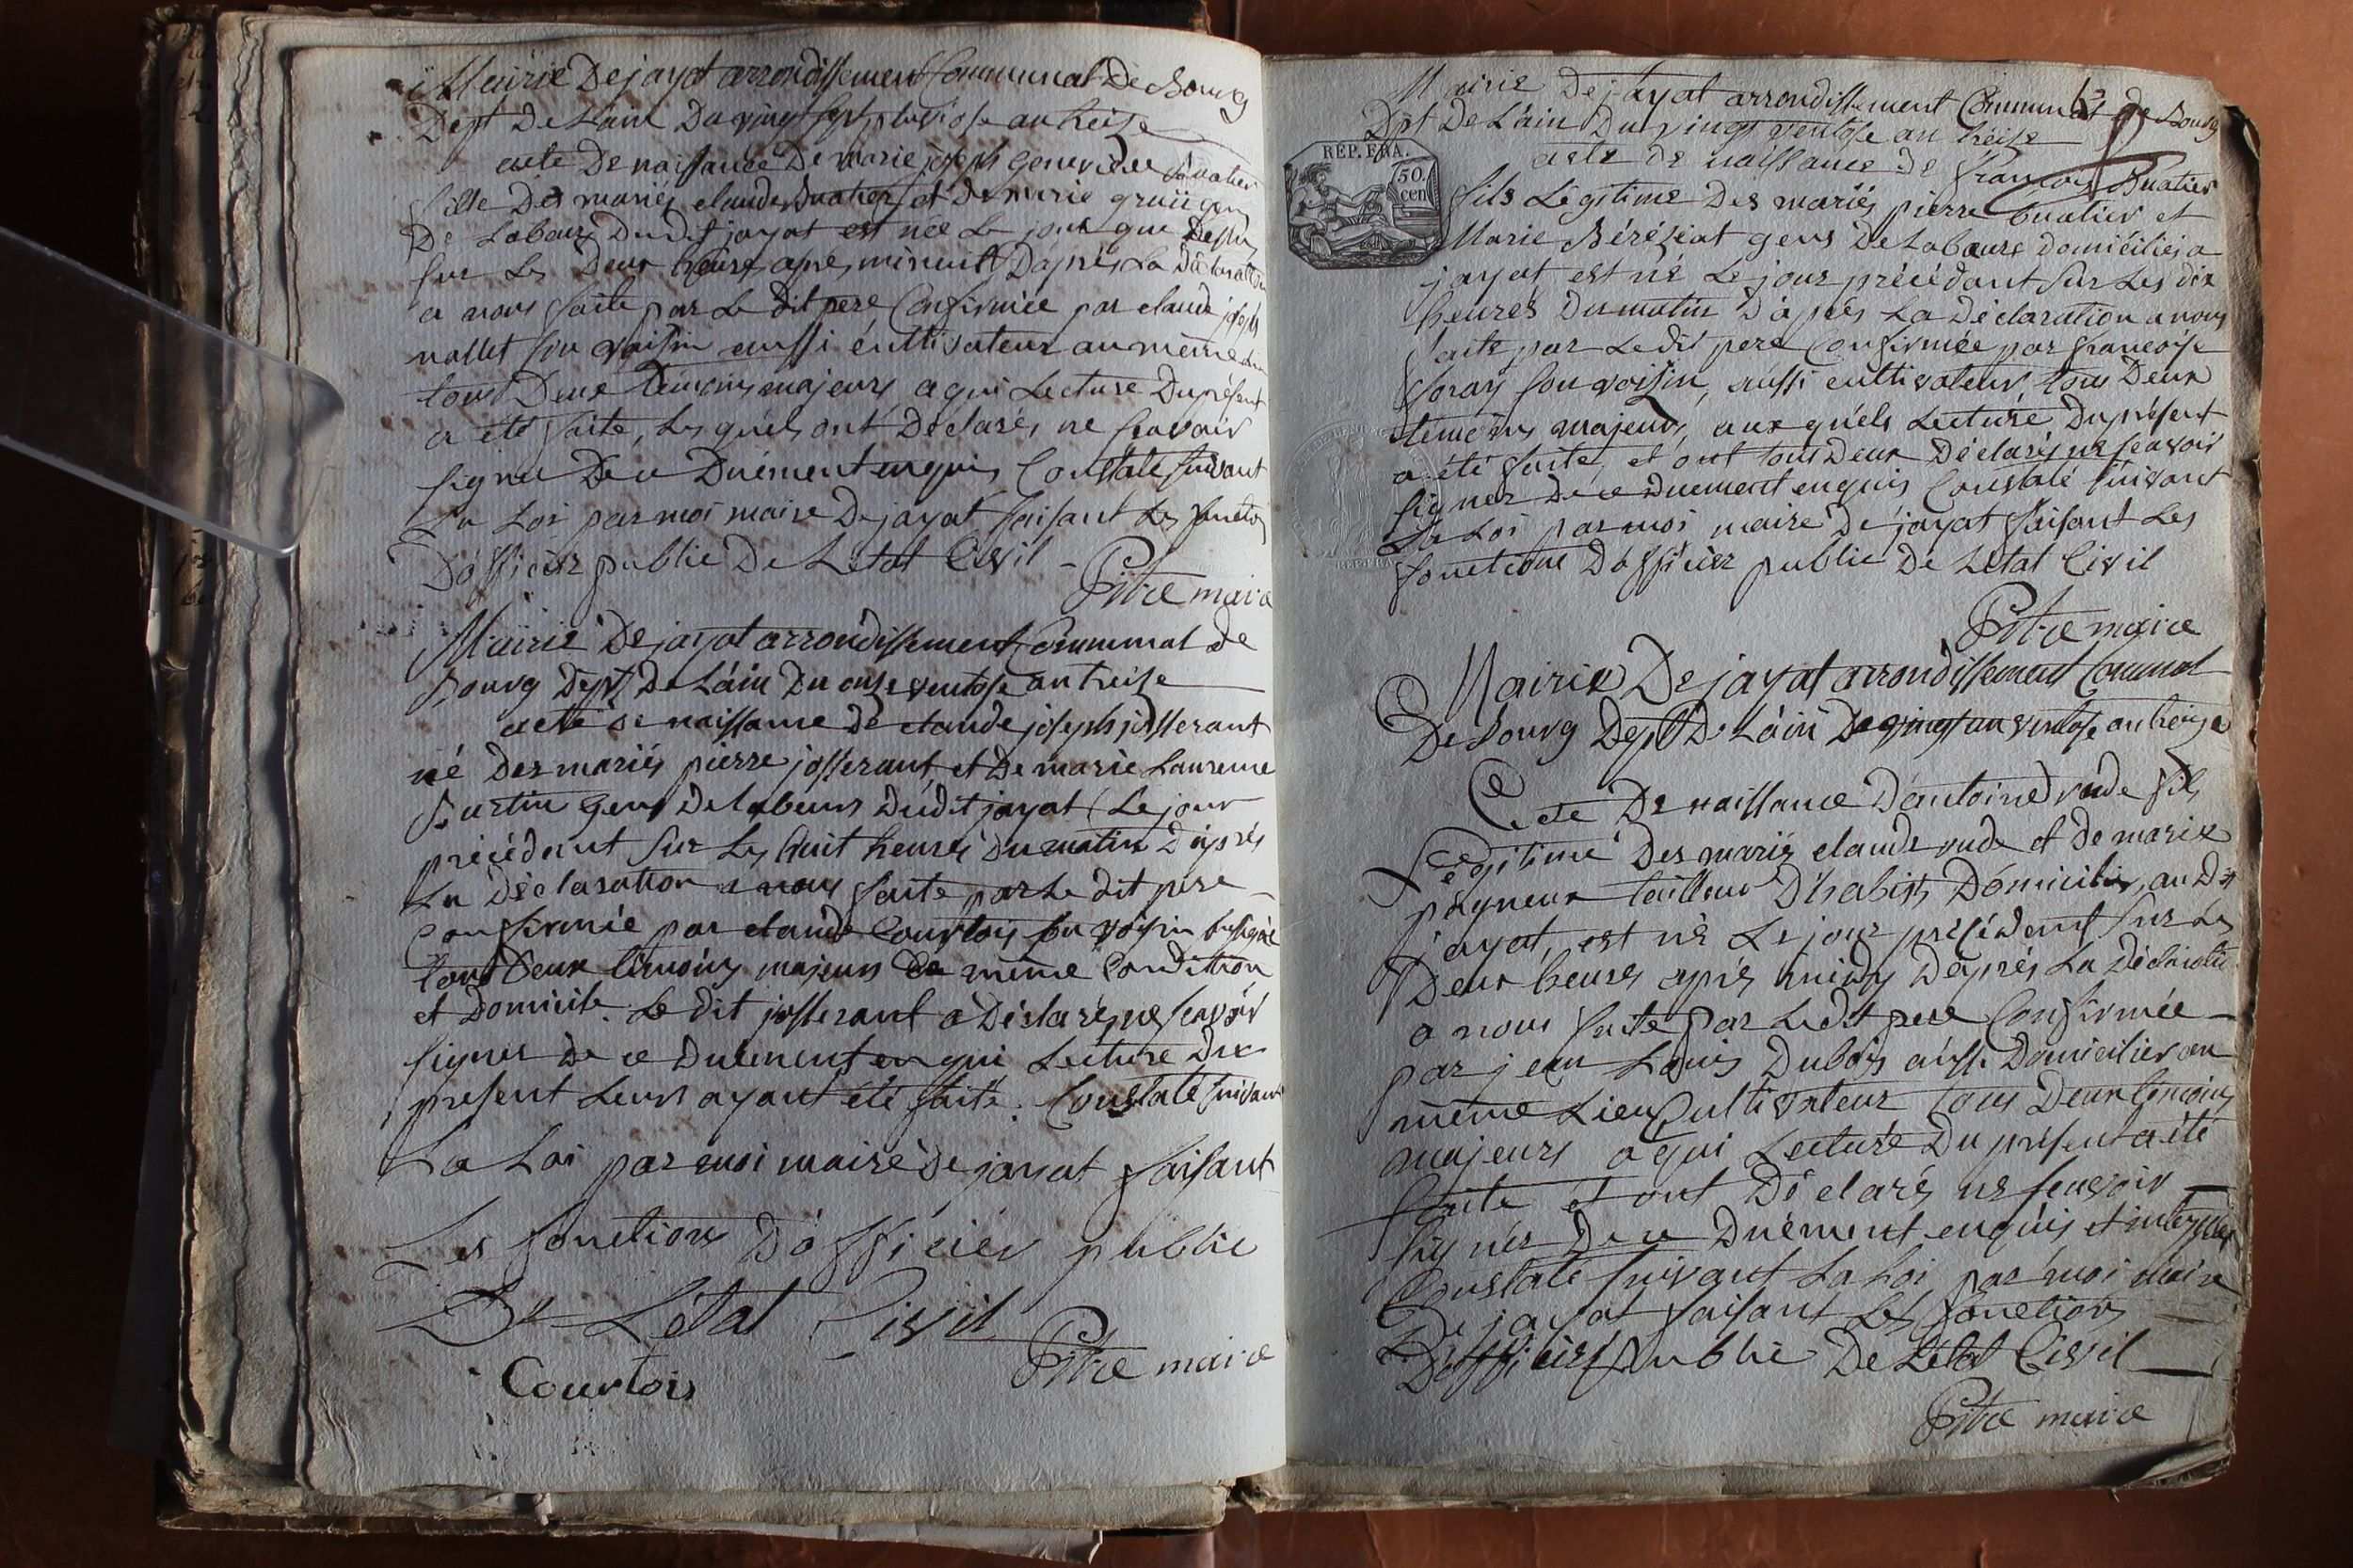 Mairie Dejayat arrondissement Communal De Bourg
Dept De Lain Du vingt sept pluviose an treize
acte De naissance De marie joseph genevieve Buatier
fille Des mariés claude Buatier et De marie gens
De Labour Dudit jayat est née Le jour que Dessus
sur Les Deux heures apres minuit Dàprés La Déclaration
a nous faite par Le Dit pere Confirmée par claude joseph
nallet son voisin aussi cultivateur au même Lieu
tous Deux témoins majeurs a qui Lecture Du présent
a été faite, Les quels ont Déclarés ne scavoir
signer De ce Duement enquis Constaté suivant
La Loi par moi maire Dejayat faisant Les fonctions
Dófficier public De Létat Civil
Pitre maire
Mairie Dejayat arrondissement Communal de
Bourg Dept De Láin Du onze ventose an treize
acte de naissance De claude joseph josserant
né Des mariés pierre josserant et De marie Laurence
gens De labeur Dudit jayat Le jour
précédent sur Les huit heures Du matin D'aprés
La Déclaration a nous faite par Le dit pere
Confirmée par claude Courtois son voisin
tous Deux témoins majeurs de même Condition
et Domicile. Le Dit josserant a Déclaré ne scavoir
signer de ce Duement enqui Lecture Du
présent Leurs ayant été faite. Constaté suivant
La Loi par moi maire De jayat faisant
Les fonctions Dófficier public
De Létat Civil
Courtois Pitre maire
REP. FRA.
50.
cen
Mairie De jayat arrondissement Communal de Bourg
Dpt De Láin Du vingt ventose an treize
acte de naissance de françois Buatier
fils Légitime Des mariés pierre buatier et
Marie Béréziat gens De Laboure Domiciliés a
jayat est né Le jour précédant sur Les dix
heures Du matin D'aprés La Déclaration a nous
faite par Le dit pere Confirmée par françois
son voisin, aussi cultivateur tous Deux
témoins majeurs, aux quels Lecture Du présent
a été faite, et ont tous Deux Déclarés ne scavoir
signer De ce Duement enquis Constaté suivant
La Loi par moi maire De jayat faisant Les
fonctions Dófficier public De Létat Civil
Pitre maire
Mairie De jayat arrondissement Communal
De Bourg Dept De Láin De vingt un ventose an treize
Acte De naissance D'antoine vude fils
Légitime Des mariés claude vude et De marie
pagneux tailleur D'habits Domiciliés au Dit
jayat, est né Le jour précédent sur Les
Deux heures aprés midy D'aprés La Déclaration
a nous faite par Ledit pere Confirmée
par jean Louis Dubois aussi Domicilier au
même Lieu Cultivateur tous Deux témoins
majeurs a qui Lecture Du présent a été
faite et ont Déclarés ne scavoir
signer De ce Duement enquis et
Constaté suivant La Loi par moi Maire
De jayat faisant Les fonctions
Dófficier public De Létat Civil
Pitre maire